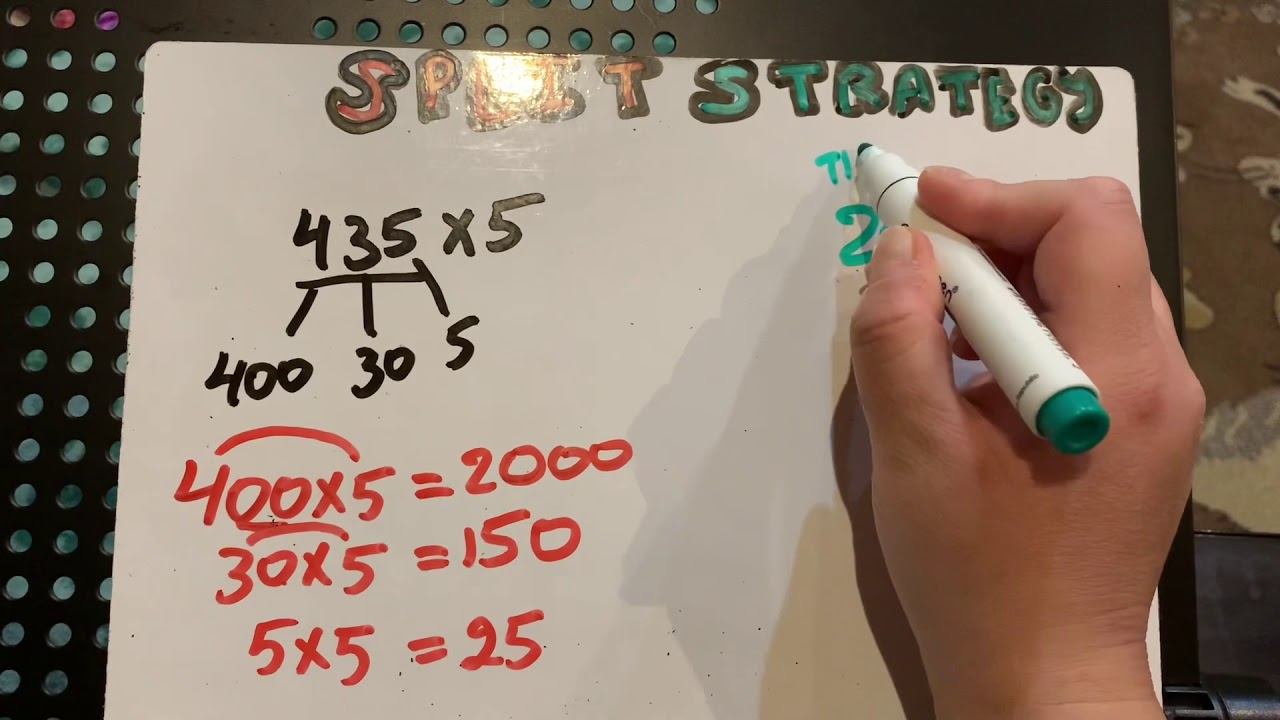 SPLIT STRATEGY
TH
2
435 x 5
400 30 5
400 x 5 = 2000
30 x 5 = 150
5 x 5 = 25